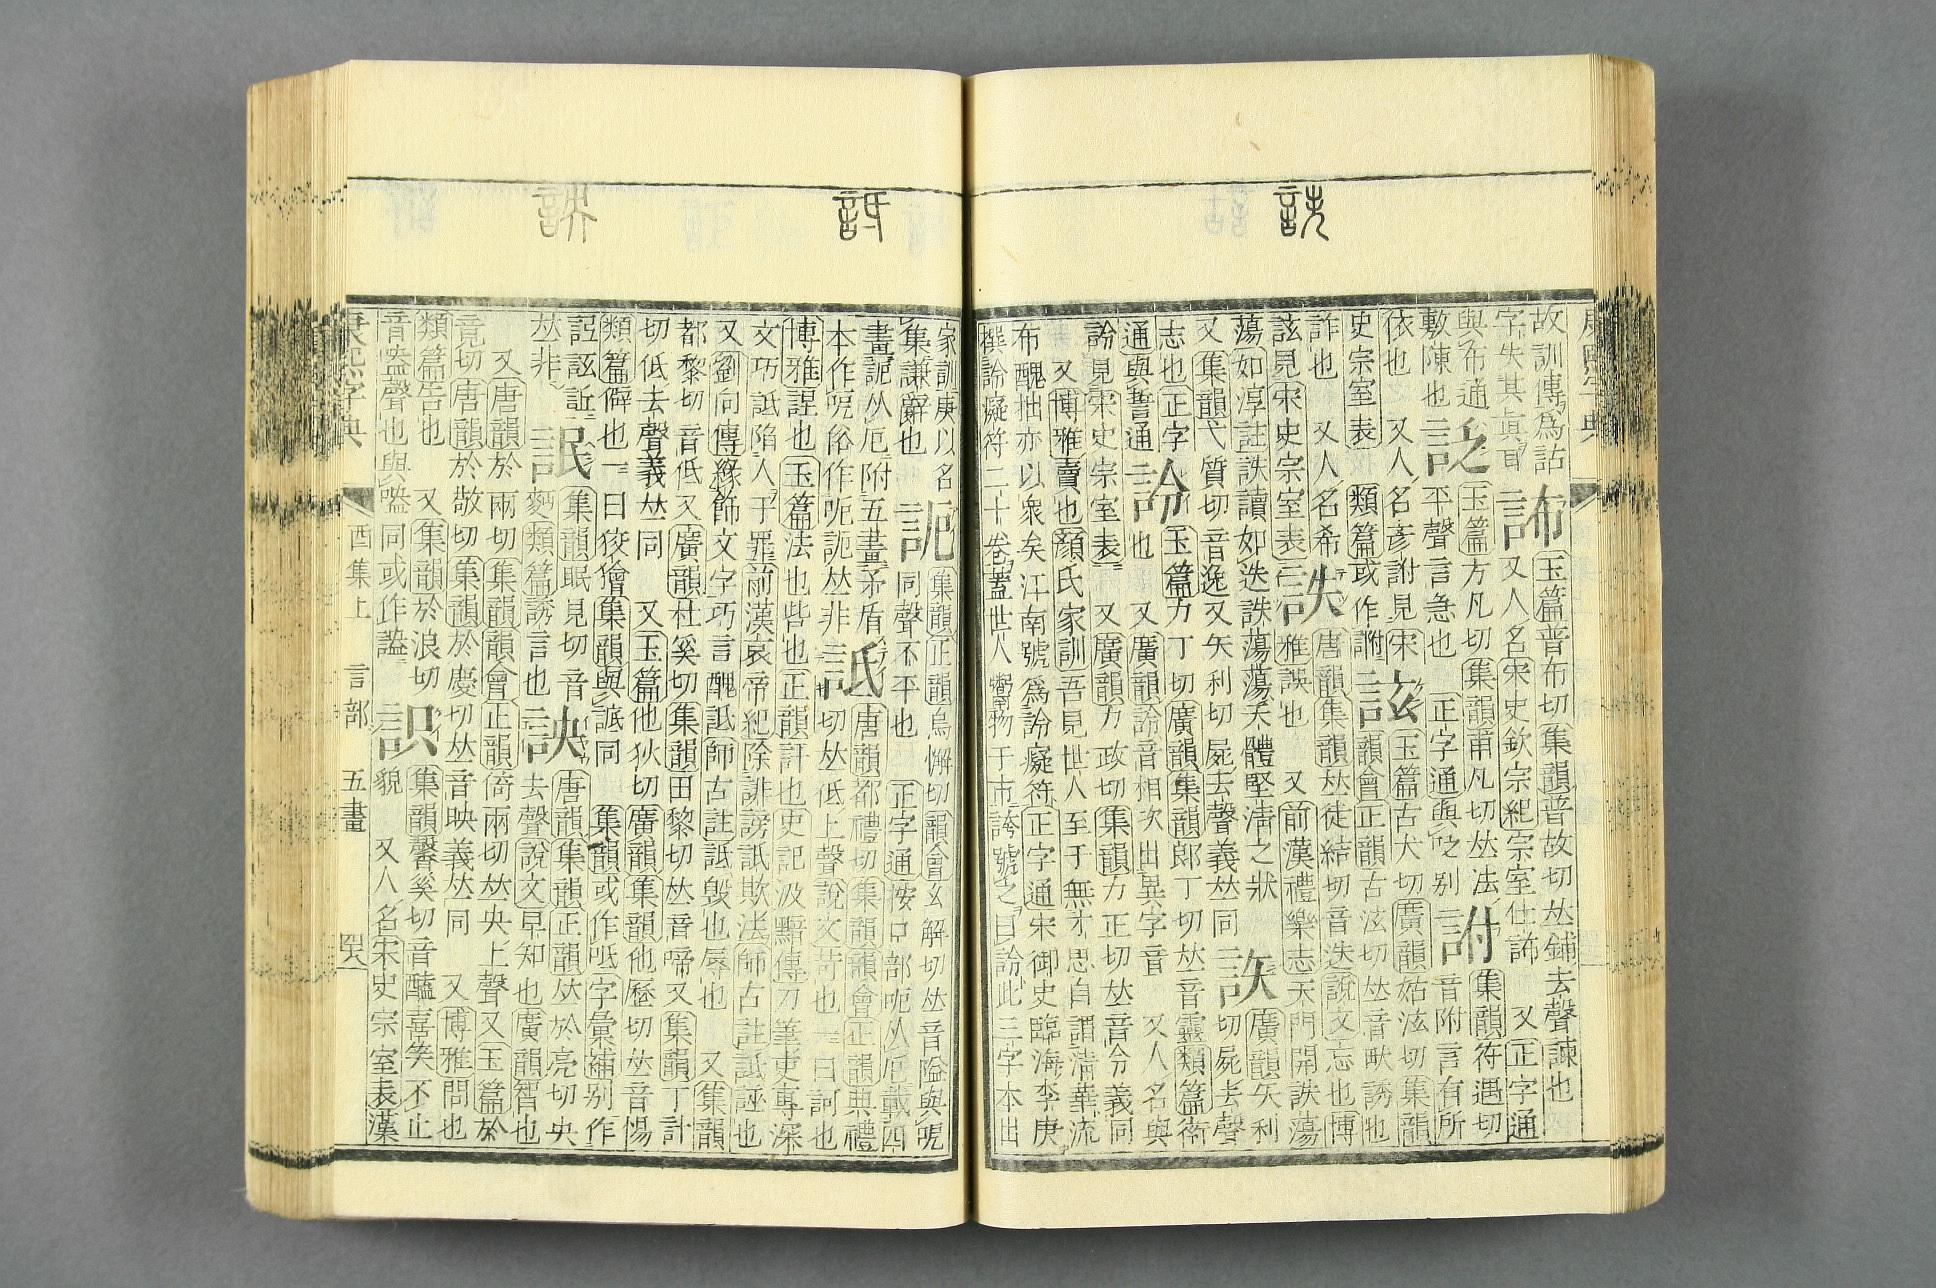 康熙字典
詄
故訓傳爲詁 玉篇普布切集韻普故切𠀤鋪去聲諫也
字失其眞 又人名宋史欽宗紀宗室仕 又正字通
與布通 玉篇方凡切集韻甫凡切𠀤法
敷陳也 平聲言急也 正字通與 別 詂 集韻符遇切
依也 又人名彥詂見宋 音附言有所
史宗室表 類篇或作 詃 玉篇古犬切廣韻姑泫切集韻
詐也 又人名希 韻會正韻古泫切𠀤音畎誘也
詃見宋史宗室表 詄 唐韻集韻𠀤徒結切音迭說文忘也博
雅誤也 又前漢禮樂志天門開詄蕩
蕩如淳註詄讀如迭詄蕩蕩天體堅淸之狀
又集韻弋質切音逸又矢利切屍去聲義𠀤同 廣韻矢利
切屍去聲
志也正字 詅 玉篇力丁切廣韻集韻郎丁切𠀤音靈類篇衒
通與誓通 也 又廣韻詅音相次出異字音 又人名與
詅見宋史宗室表 又廣韻力政切集韻力正切𠀤音令義同
又博雅賣也顏氏家訓吾見世人至于無才思自謂淸華流
布醜拙亦以衆矣江南號爲詅癡符正字通宋御史臨海李庚
撰詅癡符二十卷蓋世人鬻物于市誇號之曰詅此三字本出
詆
詇
家訓庚以名 集韻正韻烏懈切韻會幺解切𠀤音隘與呝
集謙辭也 同聲不平也 正字通按口部呃从厄載四
畫 从厄附五畫矛盾 詆 唐韻都禮切集韻韻會正韻典禮
本作呝俗作呃 𠀤非 切𠀤低上聲說文苛也一曰訶也
博雅 也玉篇法也呰也正韻訐也史記汲黯傳刀筆吏專深
文巧詆陷人于罪前漢哀帝紀除誹謗詆欺法師古註詆誣也
又劉向傳緣飾文字巧言醜詆師古註詆毀也辱也 又集韻
都黎切音低又廣韻杜奚切集韻田黎切𠀤音啼又集韻丁計
切低去聲義𠀤同 又玉篇他狄切廣韻集韻他歷切𠀤音惕
類篇僻也一曰狡獪集韻與 同 集韻或作呧字彙補別作
𠀤非 詪 集韻眠見切音
麪類篇誘言也 詇 唐韻集韻正韻𠀤於亮切央
去聲說文早知也廣韻智也
又唐韻於兩切集韻韻會正韻倚兩切𠀤央上聲又玉篇於
竟切唐韻於敬切集韻於慶切𠀤音映義𠀤同 又博雅問也
類篇告也 又集韻於浪切 集韻馨奚切音醯喜笑不止
音盎聲也與 同或作 貌 又人名宋史宗室表漢
康熙字典 酉集上 言部 五畫